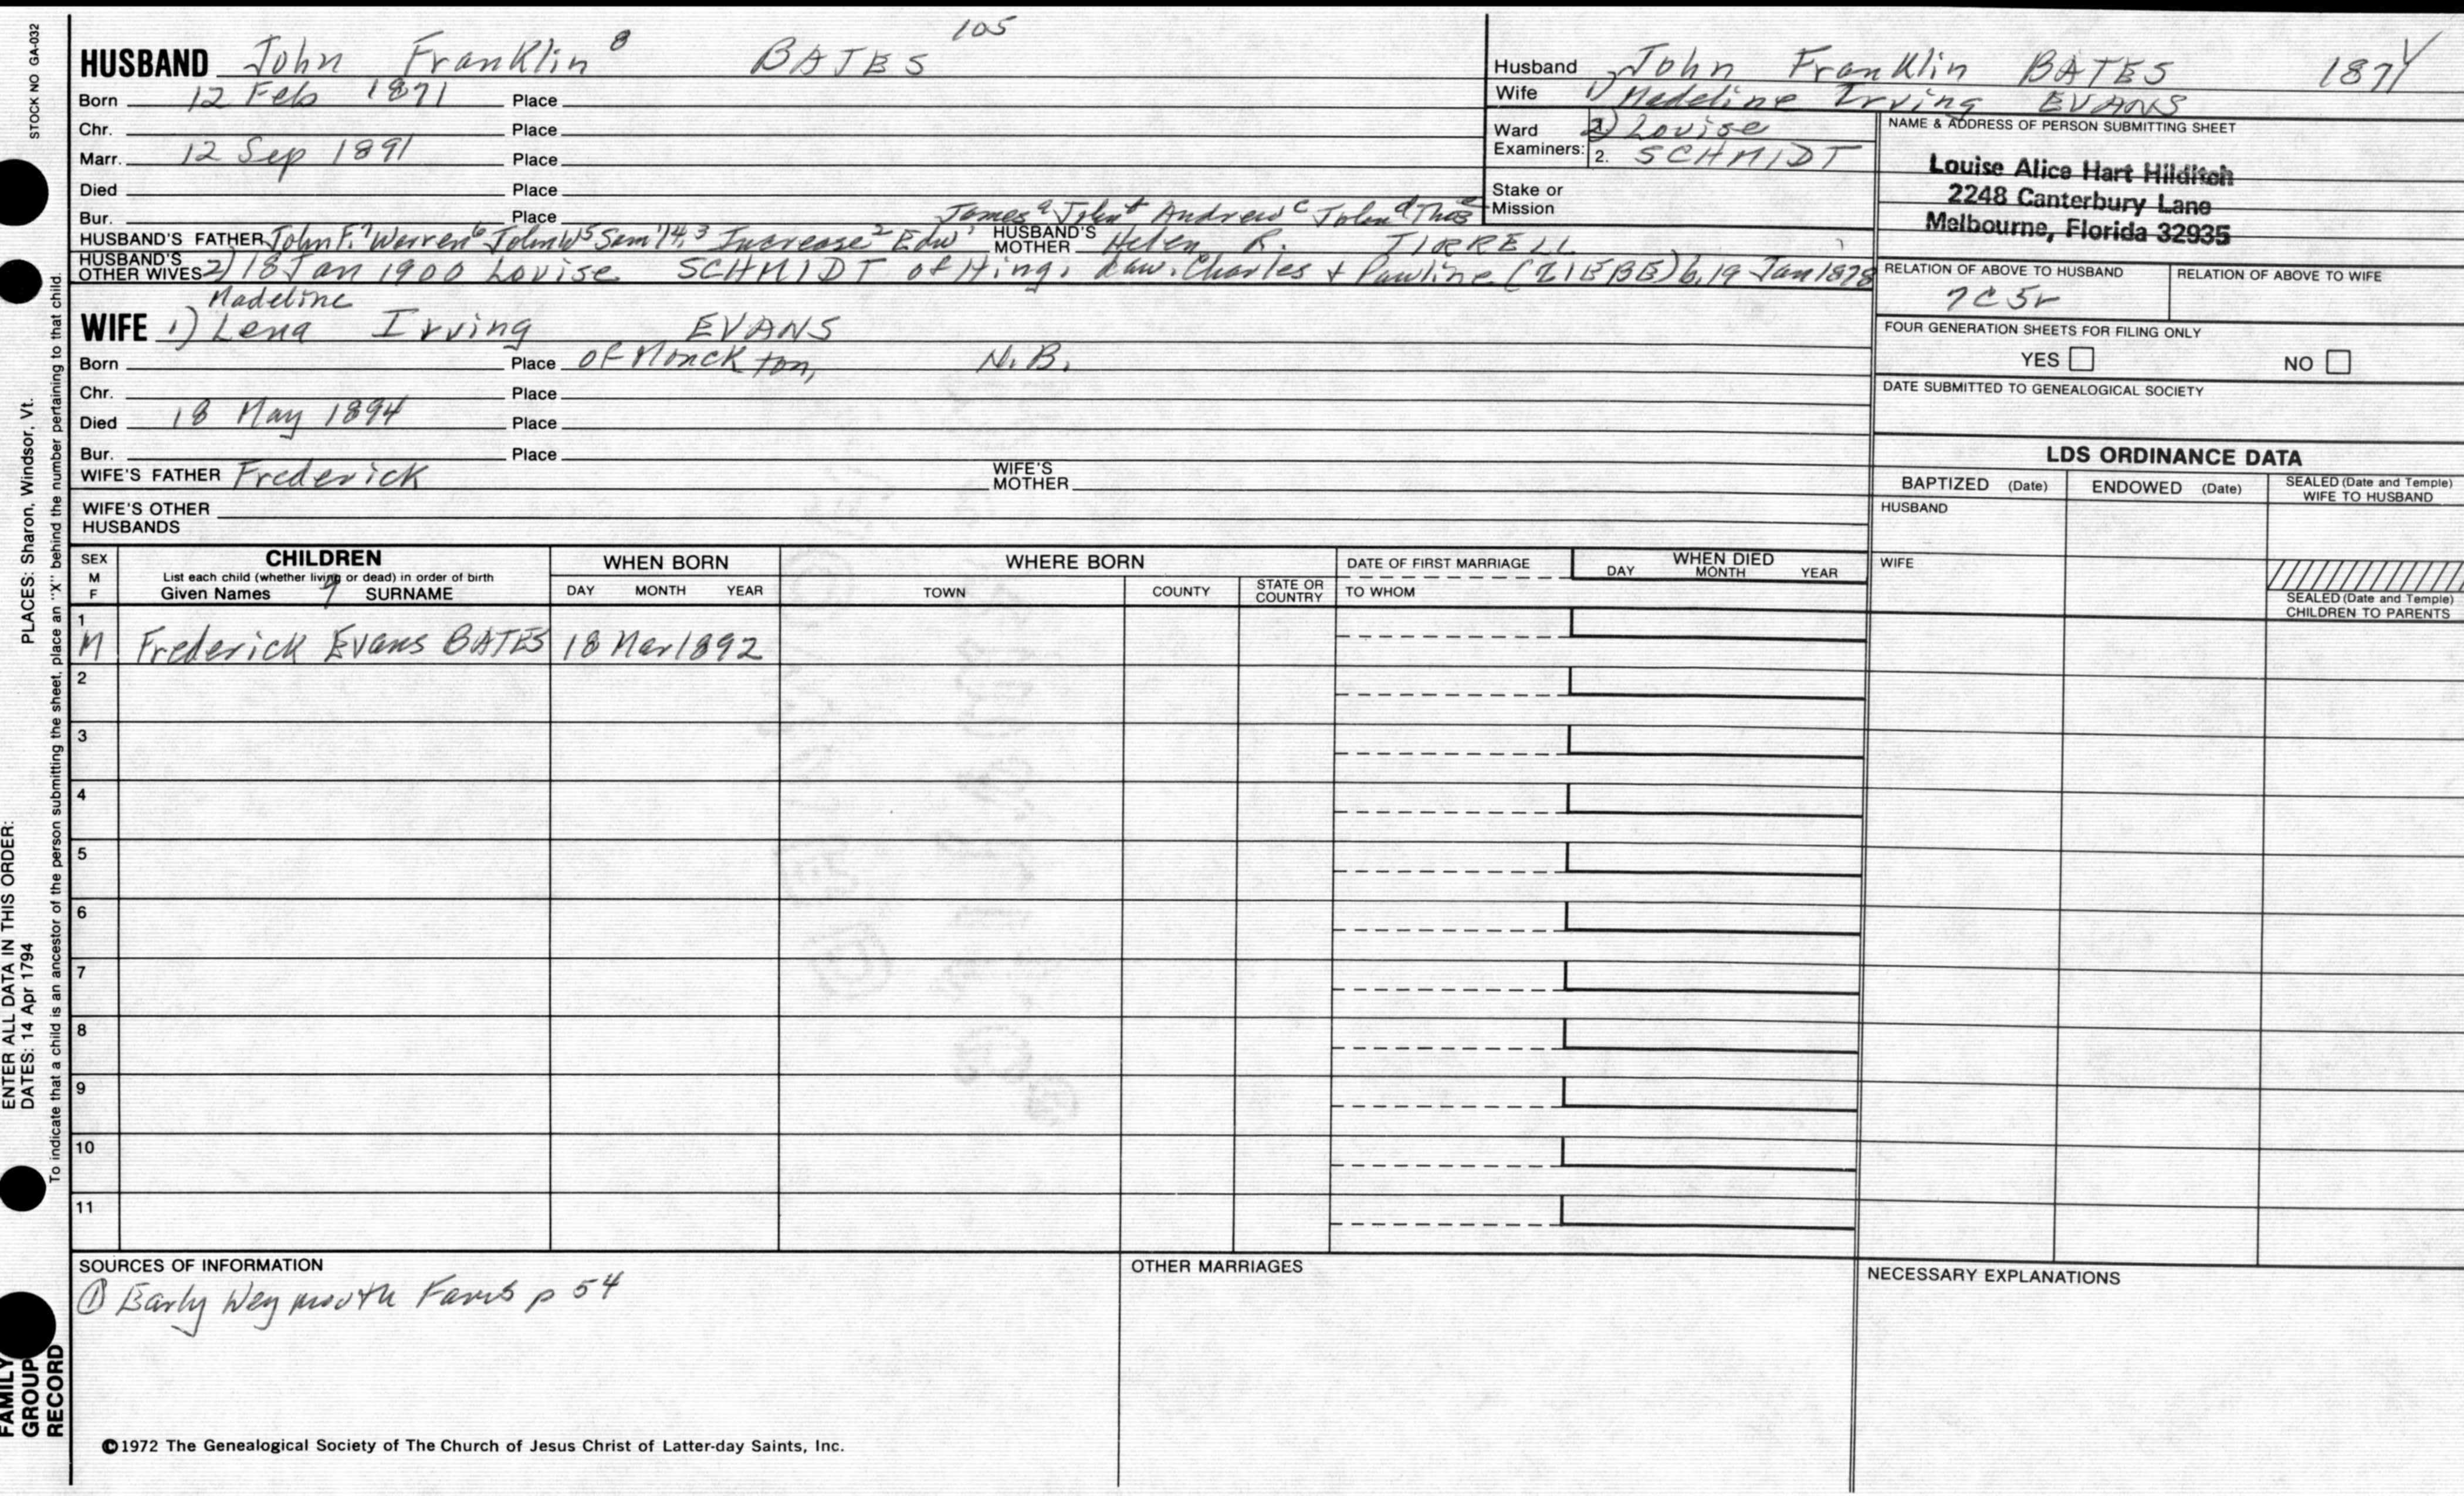 STOCK NO GA-032
105
HUSBAND John Franklin 8 BATES
Born 12 Feb 1871 Place
Chr. Place
Marr. 12 Sep 1891 Place
Died Place
Bur. Place
James a John b Andrew c John d Thos e
HUSBAND'S FATHER John F. 7 Warren 6 John W 5 Sam'l 4, 3 Increase 2 Edw 1 HUSBAND'S MOTHER Helen R. TIRRELL
HUSBAND'S OTHER WIVES 2) 18 Jan 1900 Louise SCHMIDT of Hing. daw. Charles + Pawline (ZIEBE) b. 19 Jan 1878
Madeline
WIFE 1) Lena Irving EVANS
Born Place of Monckton, N.B.
Chr. Place
Died 18 May 1894 Place
Bur. Place
WIFE'S FATHER Frederick WIFE'S MOTHER
WIFE'S OTHER HUSBANDS
Husband John Franklin BATES 1871
Wife 1) Madeline Irving EVANS
Ward Examiners: 1. 2) Louise
2. SCHMIDT
Stake or Mission
NAME & ADDRESS OF PERSON SUBMITTING SHEET
Louise Alice Hart Hilditch
2248 Canterbury Lane
Melbourne, Florida 32935
RELATION OF ABOVE TO HUSBAND RELATION OF ABOVE TO WIFE
7C5r
FOUR GENERATION SHEETS FOR FILING ONLY
YES NO
DATE SUBMITTED TO GENEALOGICAL SOCIETY
LDS ORDINANCE DATA
BAPTIZED (Date) ENDOWED (Date) SEALED (Date and Temple) WIFE TO HUSBAND
HUSBAND
WIFE
SEALED (Date and Temple)
CHILDREN TO PARENTS
SEX
M
F
CHILDREN
List each child (whether living or dead) in order of birth
Given Names 9 SURNAME
WHEN BORN
DAY MONTH YEAR
WHERE BORN
TOWN COUNTY STATE OR COUNTRY
DATE OF FIRST MARRIAGE
TO WHOM
WHEN DIED
DAY MONTH YEAR
1
M Frederick Evans BATES 18 Mar 1892
2
3
4
5
6
7
8
9
10
11
SOURCES OF INFORMATION
① Early Weymouth Fams p 54
OTHER MARRIAGES
NECESSARY EXPLANATIONS
©1972 The Genealogical Society of The Church of Jesus Christ of Latter-day Saints, Inc.
ENTER ALL DATA IN THIS ORDER:
DATES: 14 Apr 1794 PLACES: Sharon, Windsor, Vt.
To indicate that a child is an ancestor of the person submitting the sheet, place an "X" behind the number pertaining to that child.
FAMILY
GROUP
RECORD